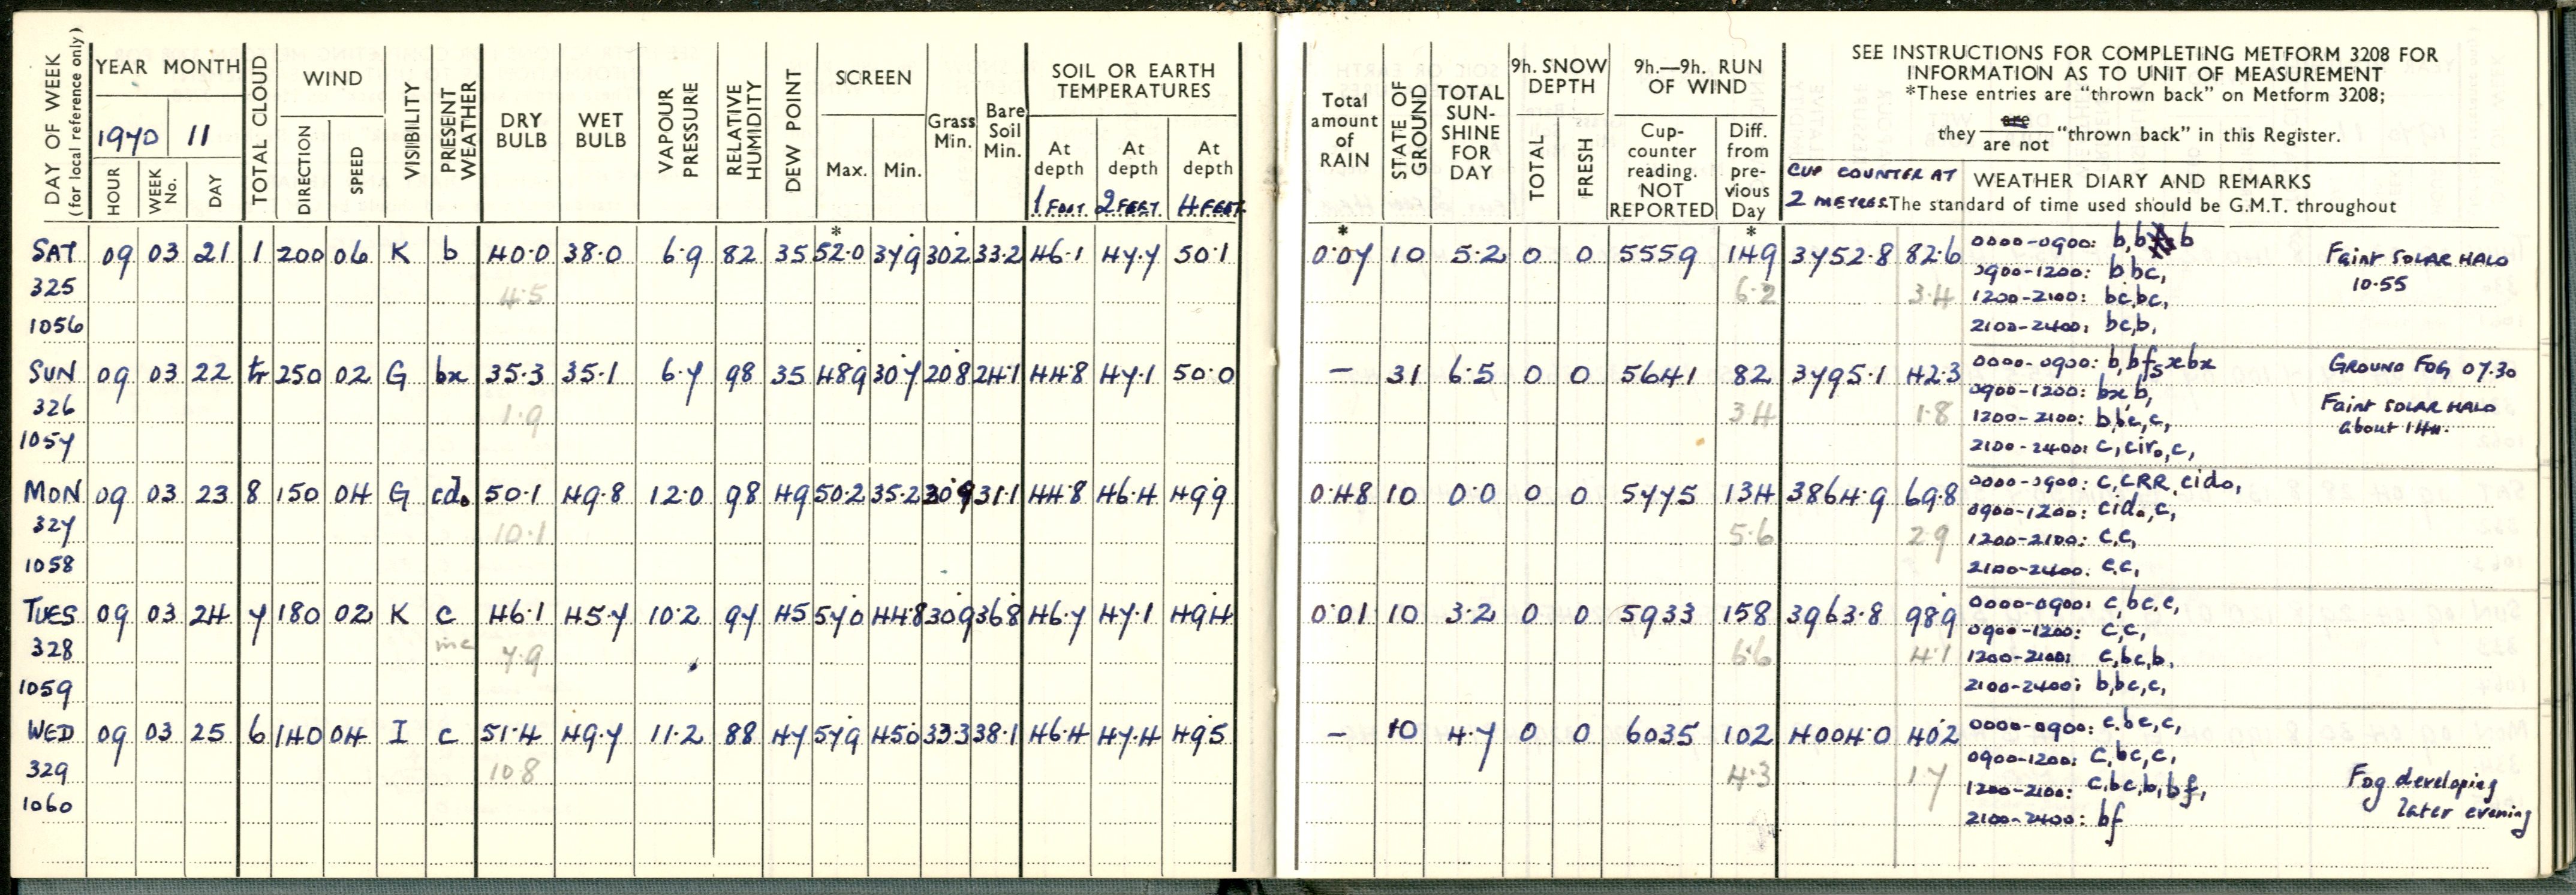 DAY OF WEEK
(for local reference only)
YEAR MONTH
1970 11
HOUR
WEEK No.
DAY
TOTAL CLOUD
WIND
DIRECTION
SPEED
VISIBILITY
PRESENT WEATHER
DRY BULB
WET BULB
VAPOUR PRESSURE
RELATIVE HUMIDITY
DEW POINT
SCREEN
Max. Min.
Grass Min.
Bare Soil Min.
SOIL OR EARTH TEMPERATURES
At depth 1 FOOT
At depth 2 FEET
At depth 4 FEET
Total amount of RAIN
STATE OF GROUND
TOTAL SUN-SHINE FOR DAY
9h. SNOW DEPTH
TOTAL
FRESH
9h.—9h. RUN OF WIND
Cup-counter reading. NOT REPORTED
Diff. from pre-vious Day
SEE INSTRUCTIONS FOR COMPLETING METFORM 3208 FOR
INFORMATION AS TO UNIT OF MEASUREMENT
*These entries are "thrown back" on Metform 3208;
they are / are not "thrown back" in this Register.
CUP COUNTER AT 2 METRES.
WEATHER DIARY AND REMARKS
The standard of time used should be G.M.T. throughout
* *
SAT 09 03 21 1 200 06 K b 40.0 38.0 6.9 82 35 52.0 37.9 30.2 33.2 46.1 47.7 50.1 0.07 10 5.2 0 0 5559 149 3752.8 82.6
325 4.5 6.2 3.4
1056
0000-0900: b,b b
0900-1200: b bc,
1200-2100: bc,bc,
2100-2400: bc,b,
Faint SOLAR HALO
10.55
SUN 09 03 22 tr 250 02 G bx 35.3 35.1 6.7 98 35 48.9 30.7 20.8 24.1 44.8 47.1 50.0 — 31 6.5 0 0 5641 82 3795.1 42.3
326 1.9 3.4 1.8
1057
0000-0900: b,bfsxbx
0900-1200: bx b,
1200-2100: b,bc,c,
2100-2400: c,cir₀,c,
GROUND FOG 07.30
Faint SOLAR HALO
about 14h.
MON 09 03 23 8 150 04 G cd₀ 50.1 49.8 12.0 98 49 50.2 35.2 30.9 31.1 44.8 46.4 49.9 0.48 10 0.0 0 0 5775 134 3864.9 69.8
327 10.1 5.6 2.9
1058
0000-0900: c,CRR,cido,
0900-1200: cid₀,c,
1200-2100: c,c,
2100-2400: c,c,
TUES 09 03 24 7 180 02 K c 46.1 45.7 10.2 97 45 57.0 44.8 30.9 36.8 46.7 47.1 49.4 0.01 10 3.2 0 0 5933 158 3963.8 98.9
328 7.9 6.6 4.1
1059
0000-0900: c,bc,c,
0900-1200: c,c,
1200-2100: c,bc,b,
2100-2400: b,bc,c,
WED 09 03 25 6 140 04 I c 51.4 49.7 11.2 88 47 57.9 45.0 33.3 38.1 46.4 47.4 49.5 — 10 4.7 0 0 6035 102 4004.0 40.2
329 10.8 4.3 1.7
1060
0000-0900: c,bc,c,
0900-1200: C,bc,c,
1200-2100: c,bc,b,bf,
2100-2400: bf
Fog developing
later evening